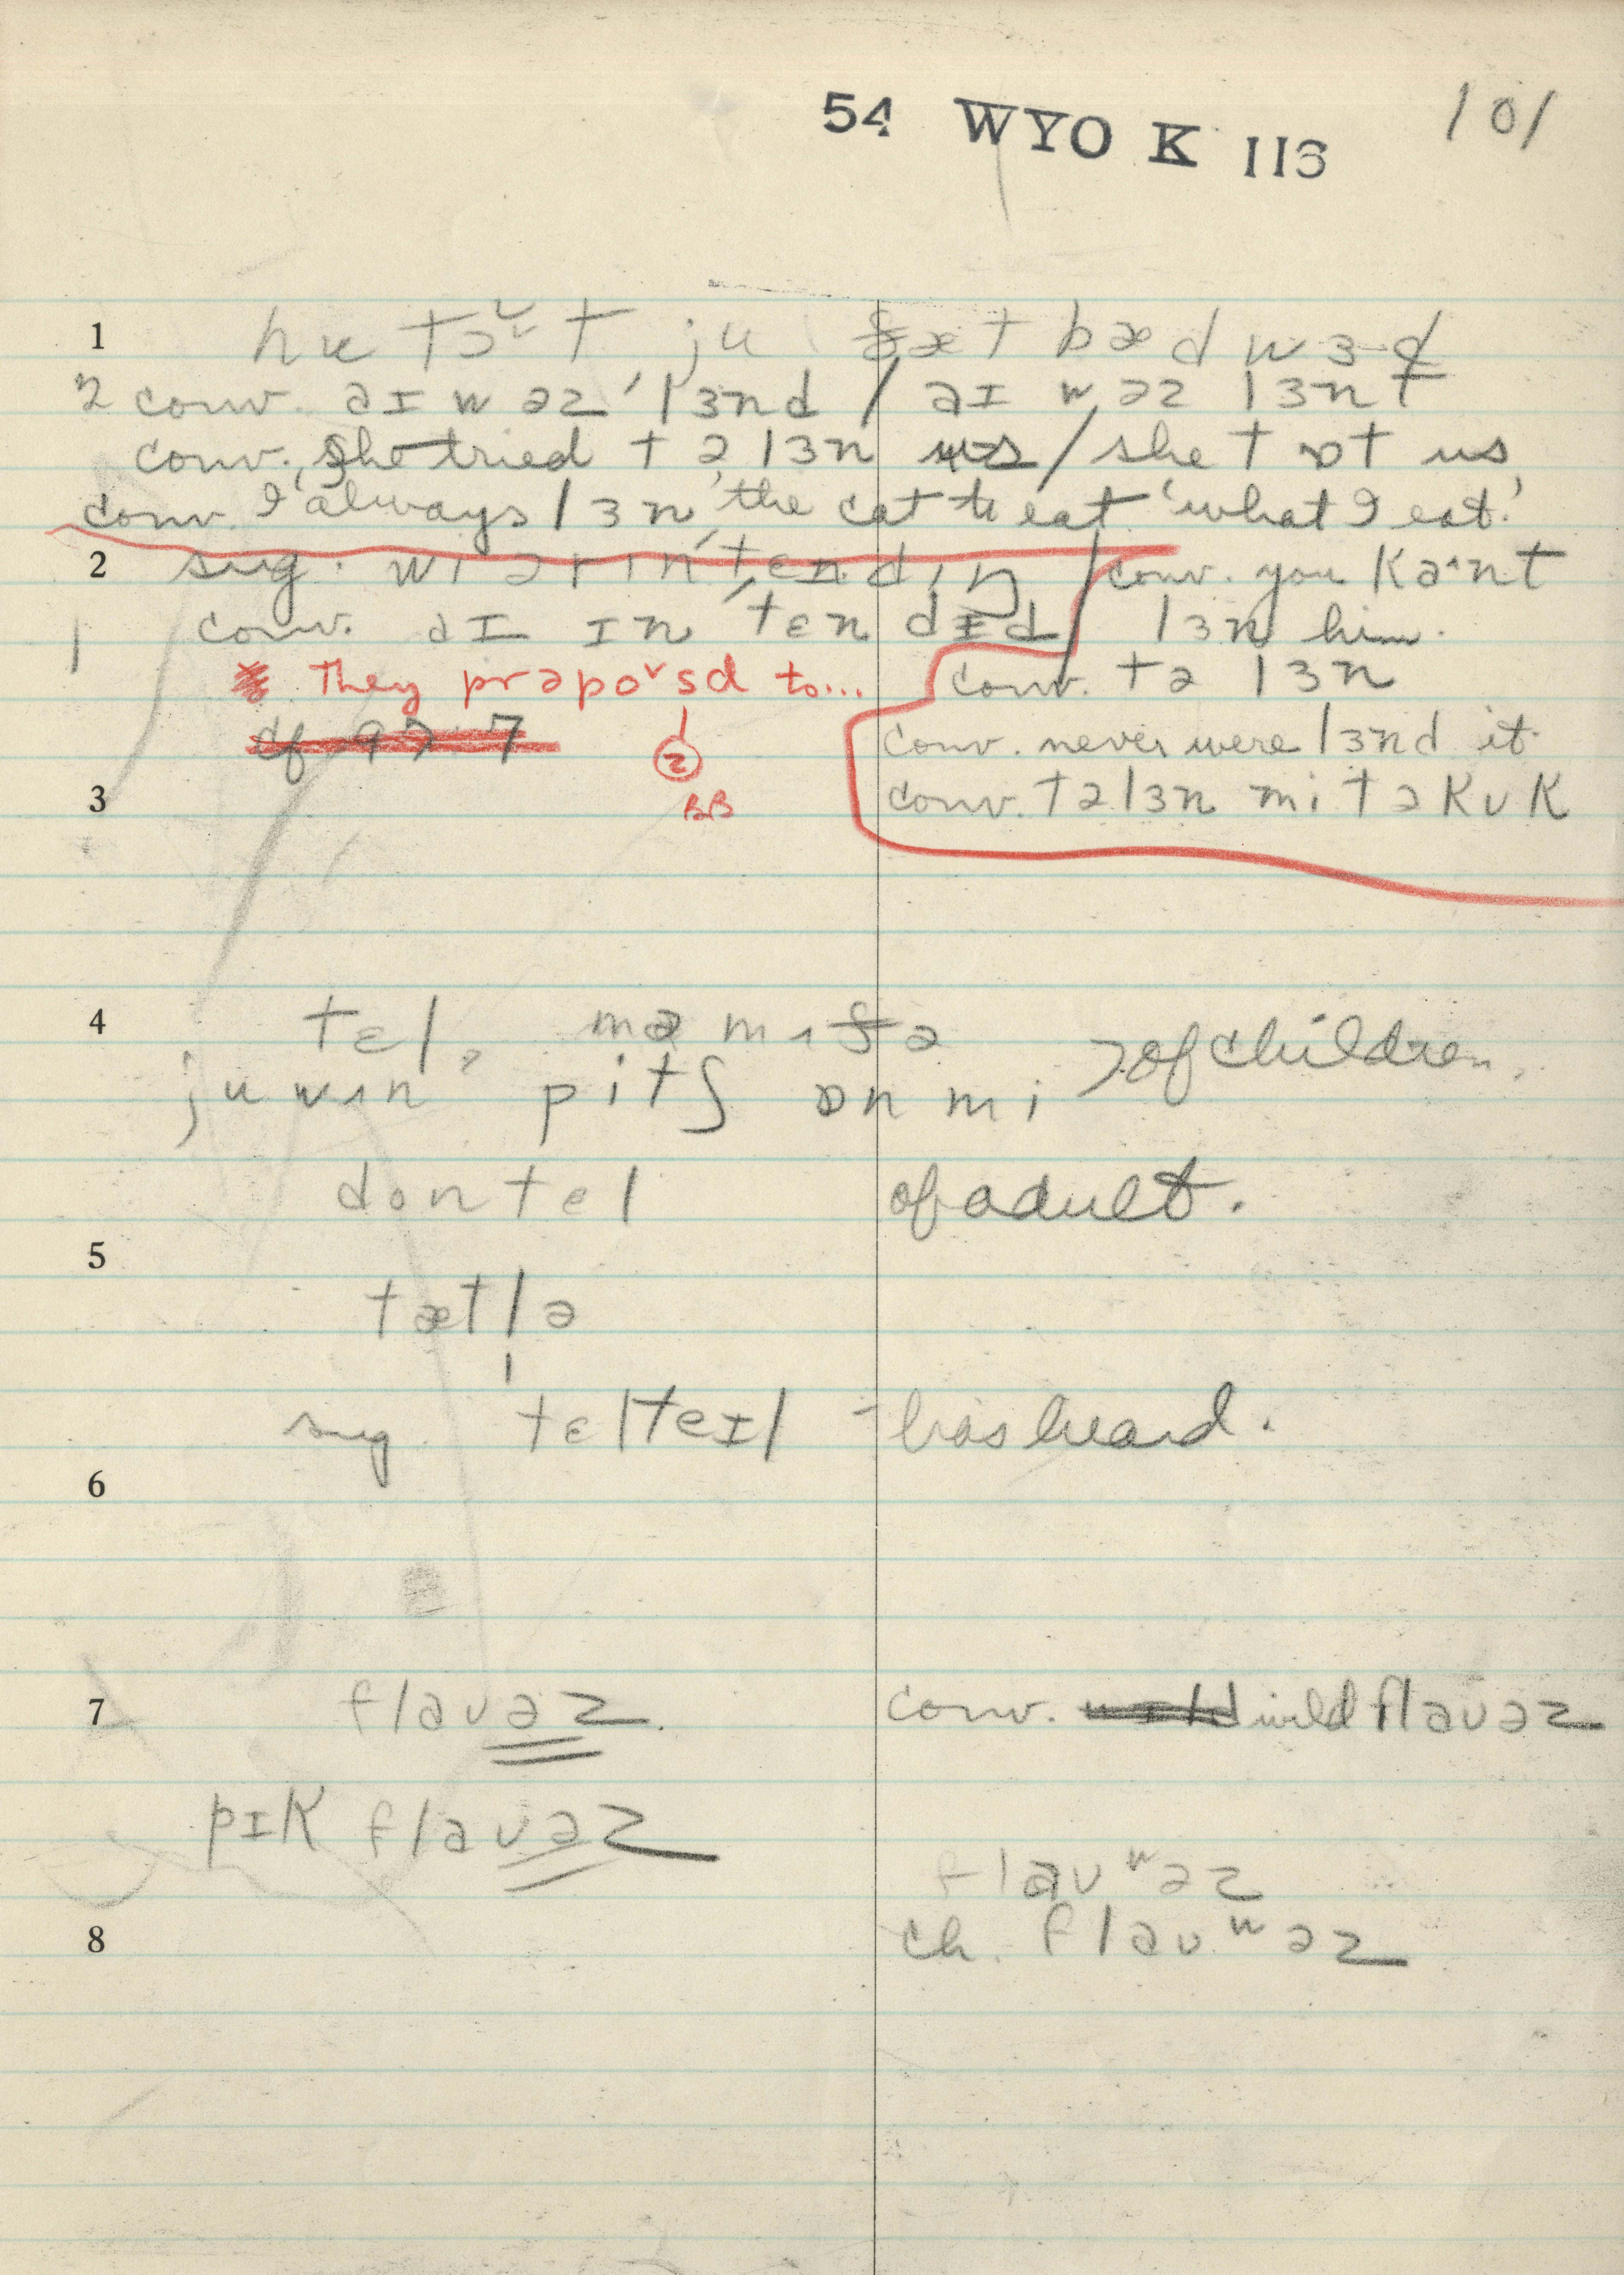 54 WYO K 113 101
1 hu tɔˇt ju ðæt bæd wɜd
2 conv. aɪ wəz lɜnd / aɪ wəz lɜnt
conv. she tried tə lɜn us / she tɒt us
conv. I always lɜn the cat to eat 'what I eat.'
2 sug. wɪ ər ɪn'tendɪŋ / conv. you ka^nt
conv. aɪ ɪn'tɛndɪd / lɜn him.
They prəpoˇsd to... conv. tə lɜn
cf 97 7 2 conv. never were lɜnd it
3 BB conv. tə lɜn mi tə kʊk
4 tɛl
ju wʌn pitʃ ɒn mi > of children.
don tel of adult.
5
tætlə
sug. 'tɛlteɪl - has heard.
6
7 flaʊəz. conv. wild flaʊəz
pɪk flaʊəz
flaʊʷəz
8 ch. flaʊʷəz